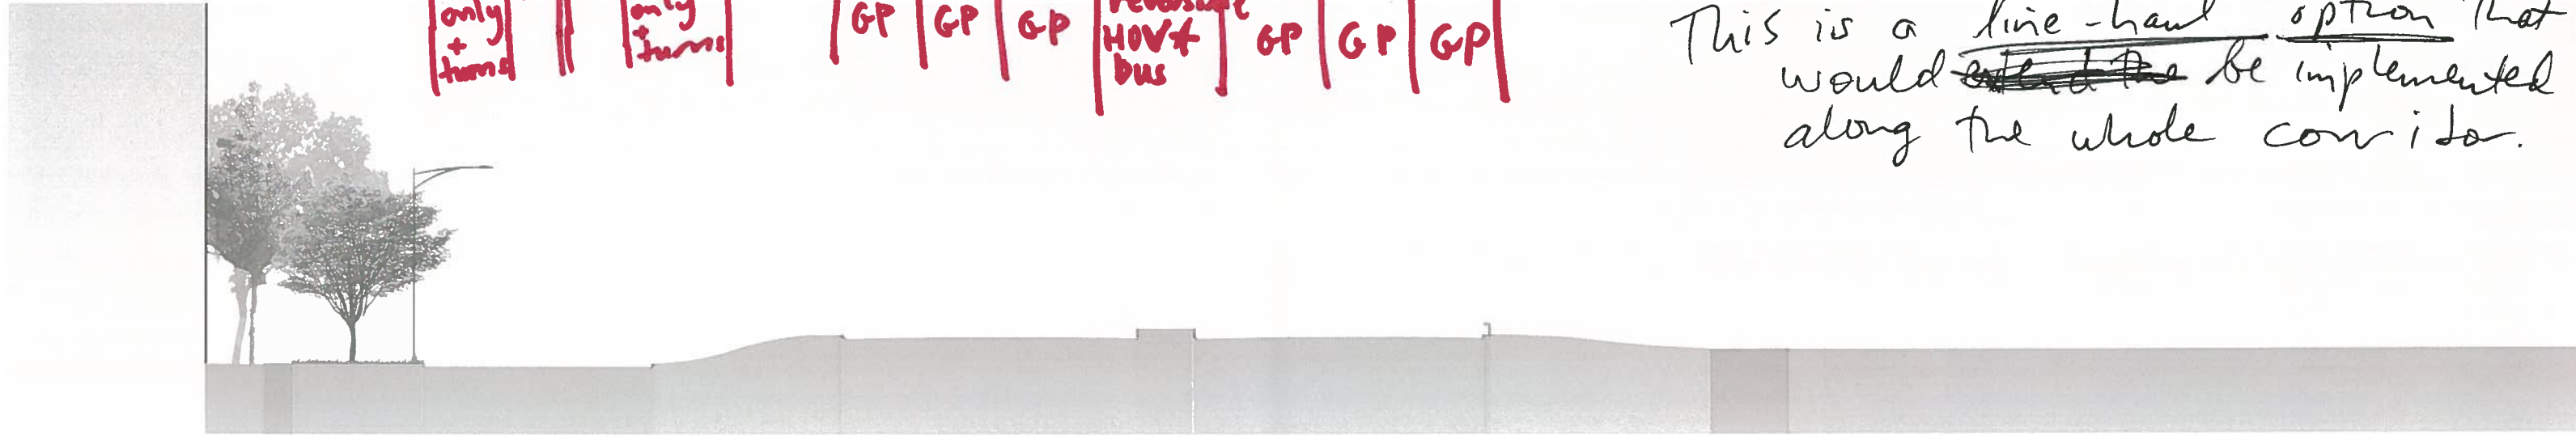 only
+
turns
only
+
turns
GP
GP
GP
reversible
HOV+
bus
GP
GP
GP
This is a line-haul option that
would be implemented
along the whole corridor.